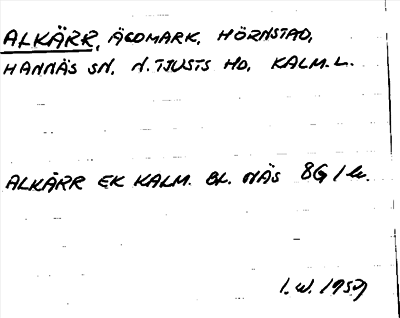 ALKÄRR, ÄGOMARK, HÖRNSTAD,
HANNÄS SN, N. TJUSTS HD, KALM. L.
ALKÄRR EK KALM. BL. NÄS 8G /
I. W. 1959